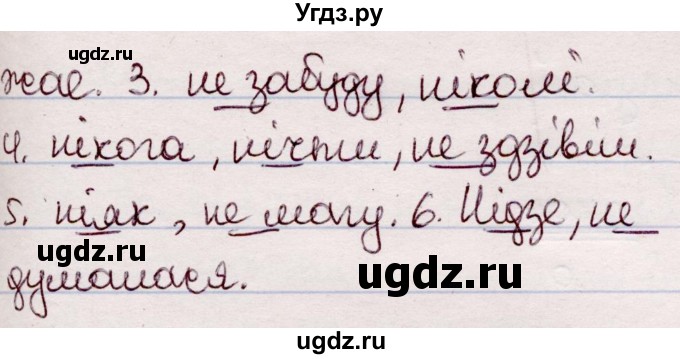 Угдз.ру
ugdz.ru
ugdz.ru
жае. 3. не забуду, ніколі.
4. нікога, нічым, не здзівіш.
5. ніяк, не магу. 6. Нідзе, не
ugdz.ru
ugdz.ru
думалася.
ugdz.ru
ugdz.ru